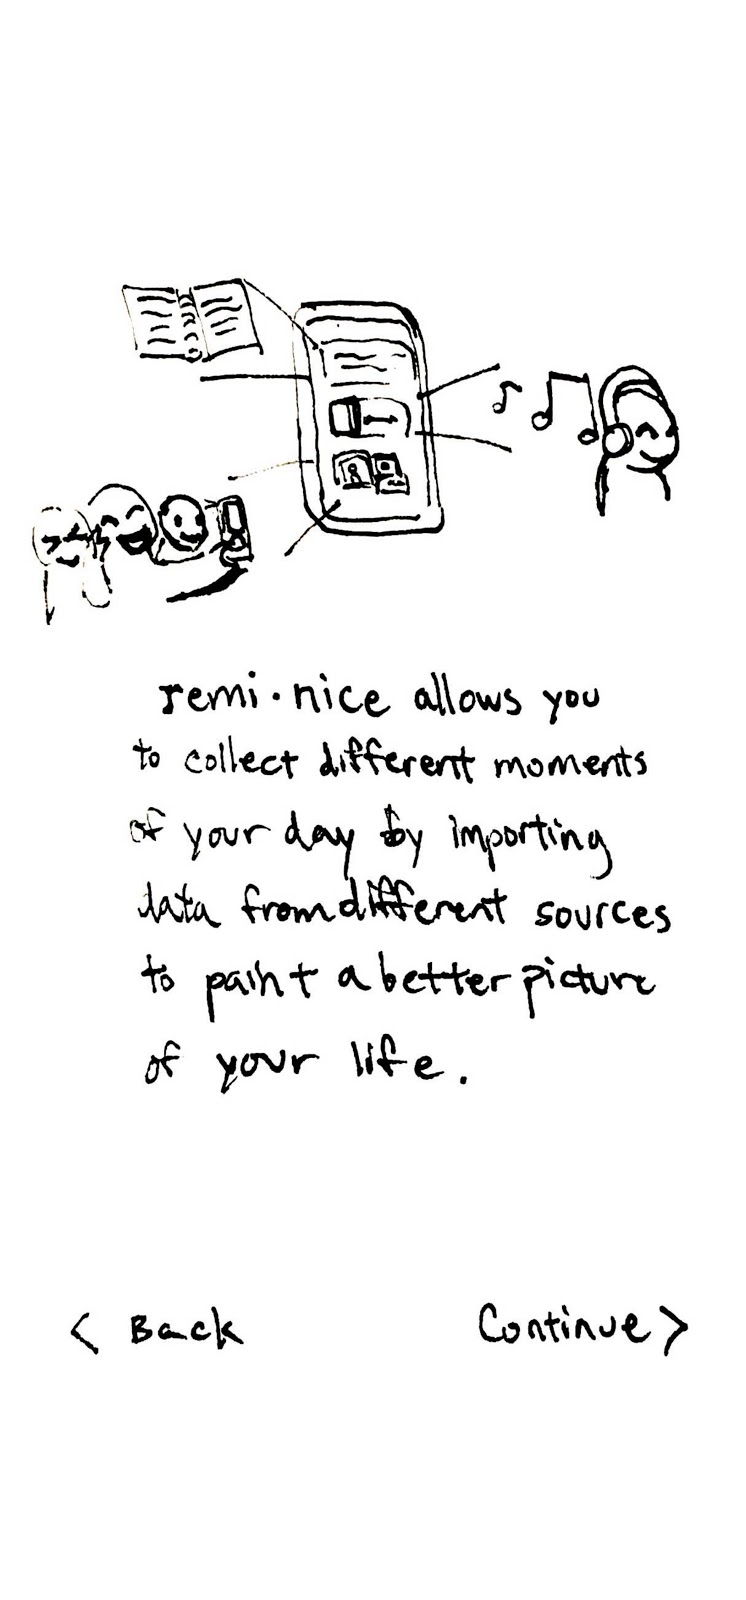 remi·nice allows you
to collect different moments
of your day by importing
data from different sources
to paint a better picture
of your life.
< Back
Continue >